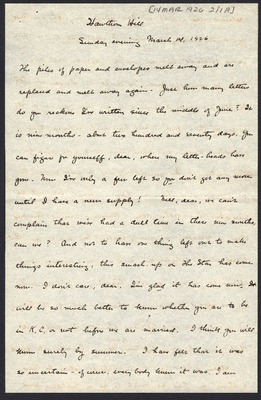 [14 MAR 1926 2/1A]
Hawthorn Hill
Sunday evening March 14, 1926
The piles of paper and envelopes melt away and are
replaced and melt away again. Just how many letters
do you reckon I've written since the middle of June? It
is nine months - about two hundred and seventy days. You
can figure for yourself, dear, where my letter-heads have
gone. Now I've only a few left so you don't get any more
until I have a new supply! Well, dear, we can't
complain that we've had a dull time in these nine months,
can we? And not to have one thing left out to make
things interesting, this smash-up on The Star has come
now. I don't care, dear. I'm glad it has come now. It
will be so much better to know whether you are to be
in K.C. or not before we are married. I think you will
know surely by summer. I have felt that it was
so uncertain - of course, everybody knew it was. I am